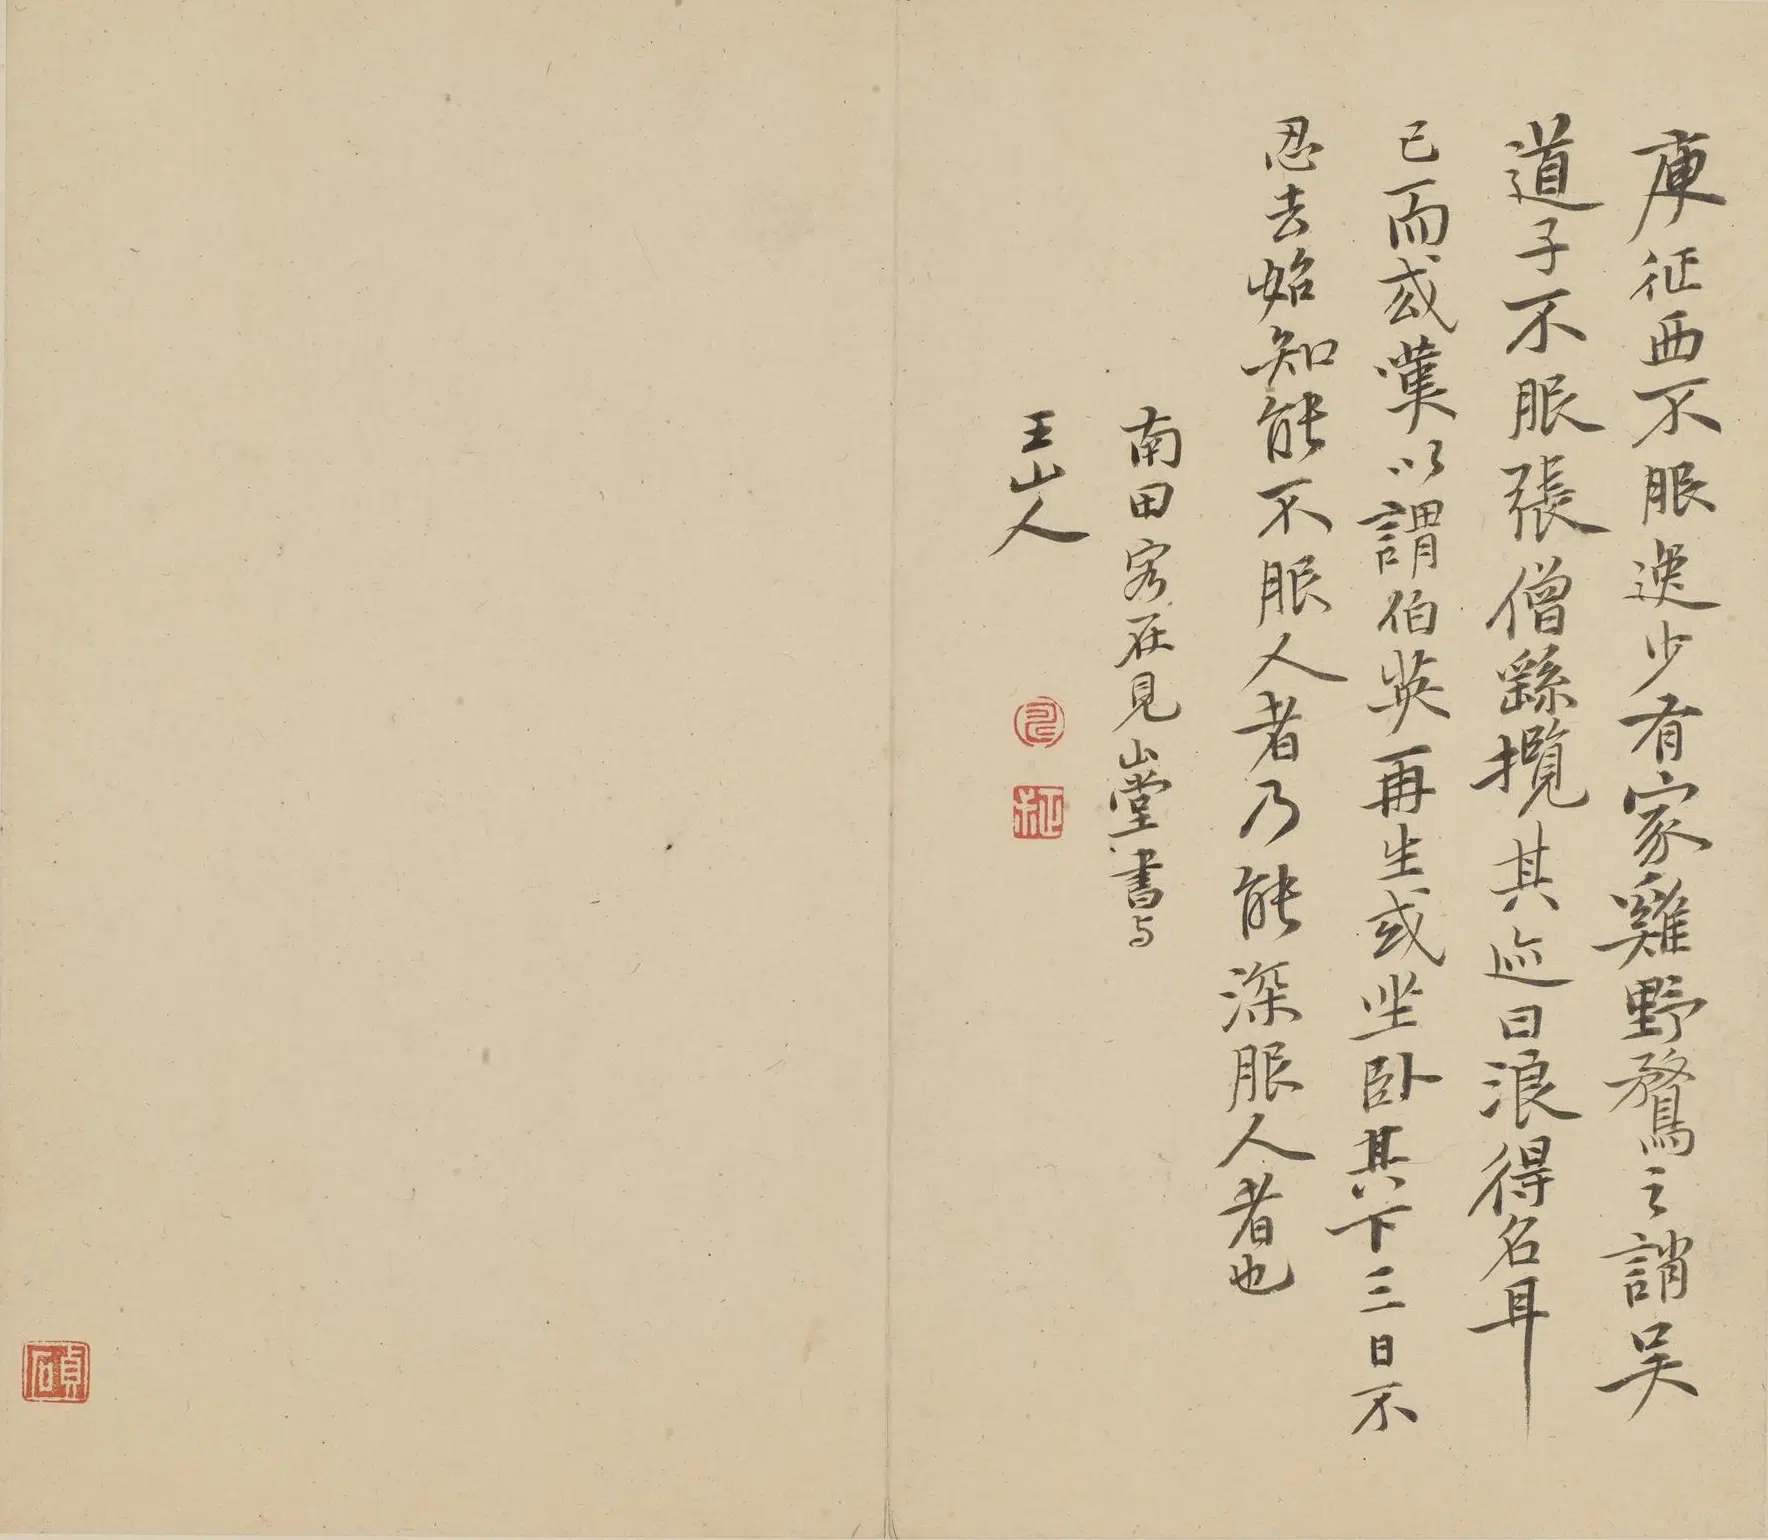 庾征西不服逸少有家雞野鶩之誚吴
道子不服張僧繇攬其迹曰浪得名耳
已而或嘆以謂伯英再生或坐卧其下三日不
忍去始知能不服人者乃能深服人者也
南田客在見山堂書与
王山人